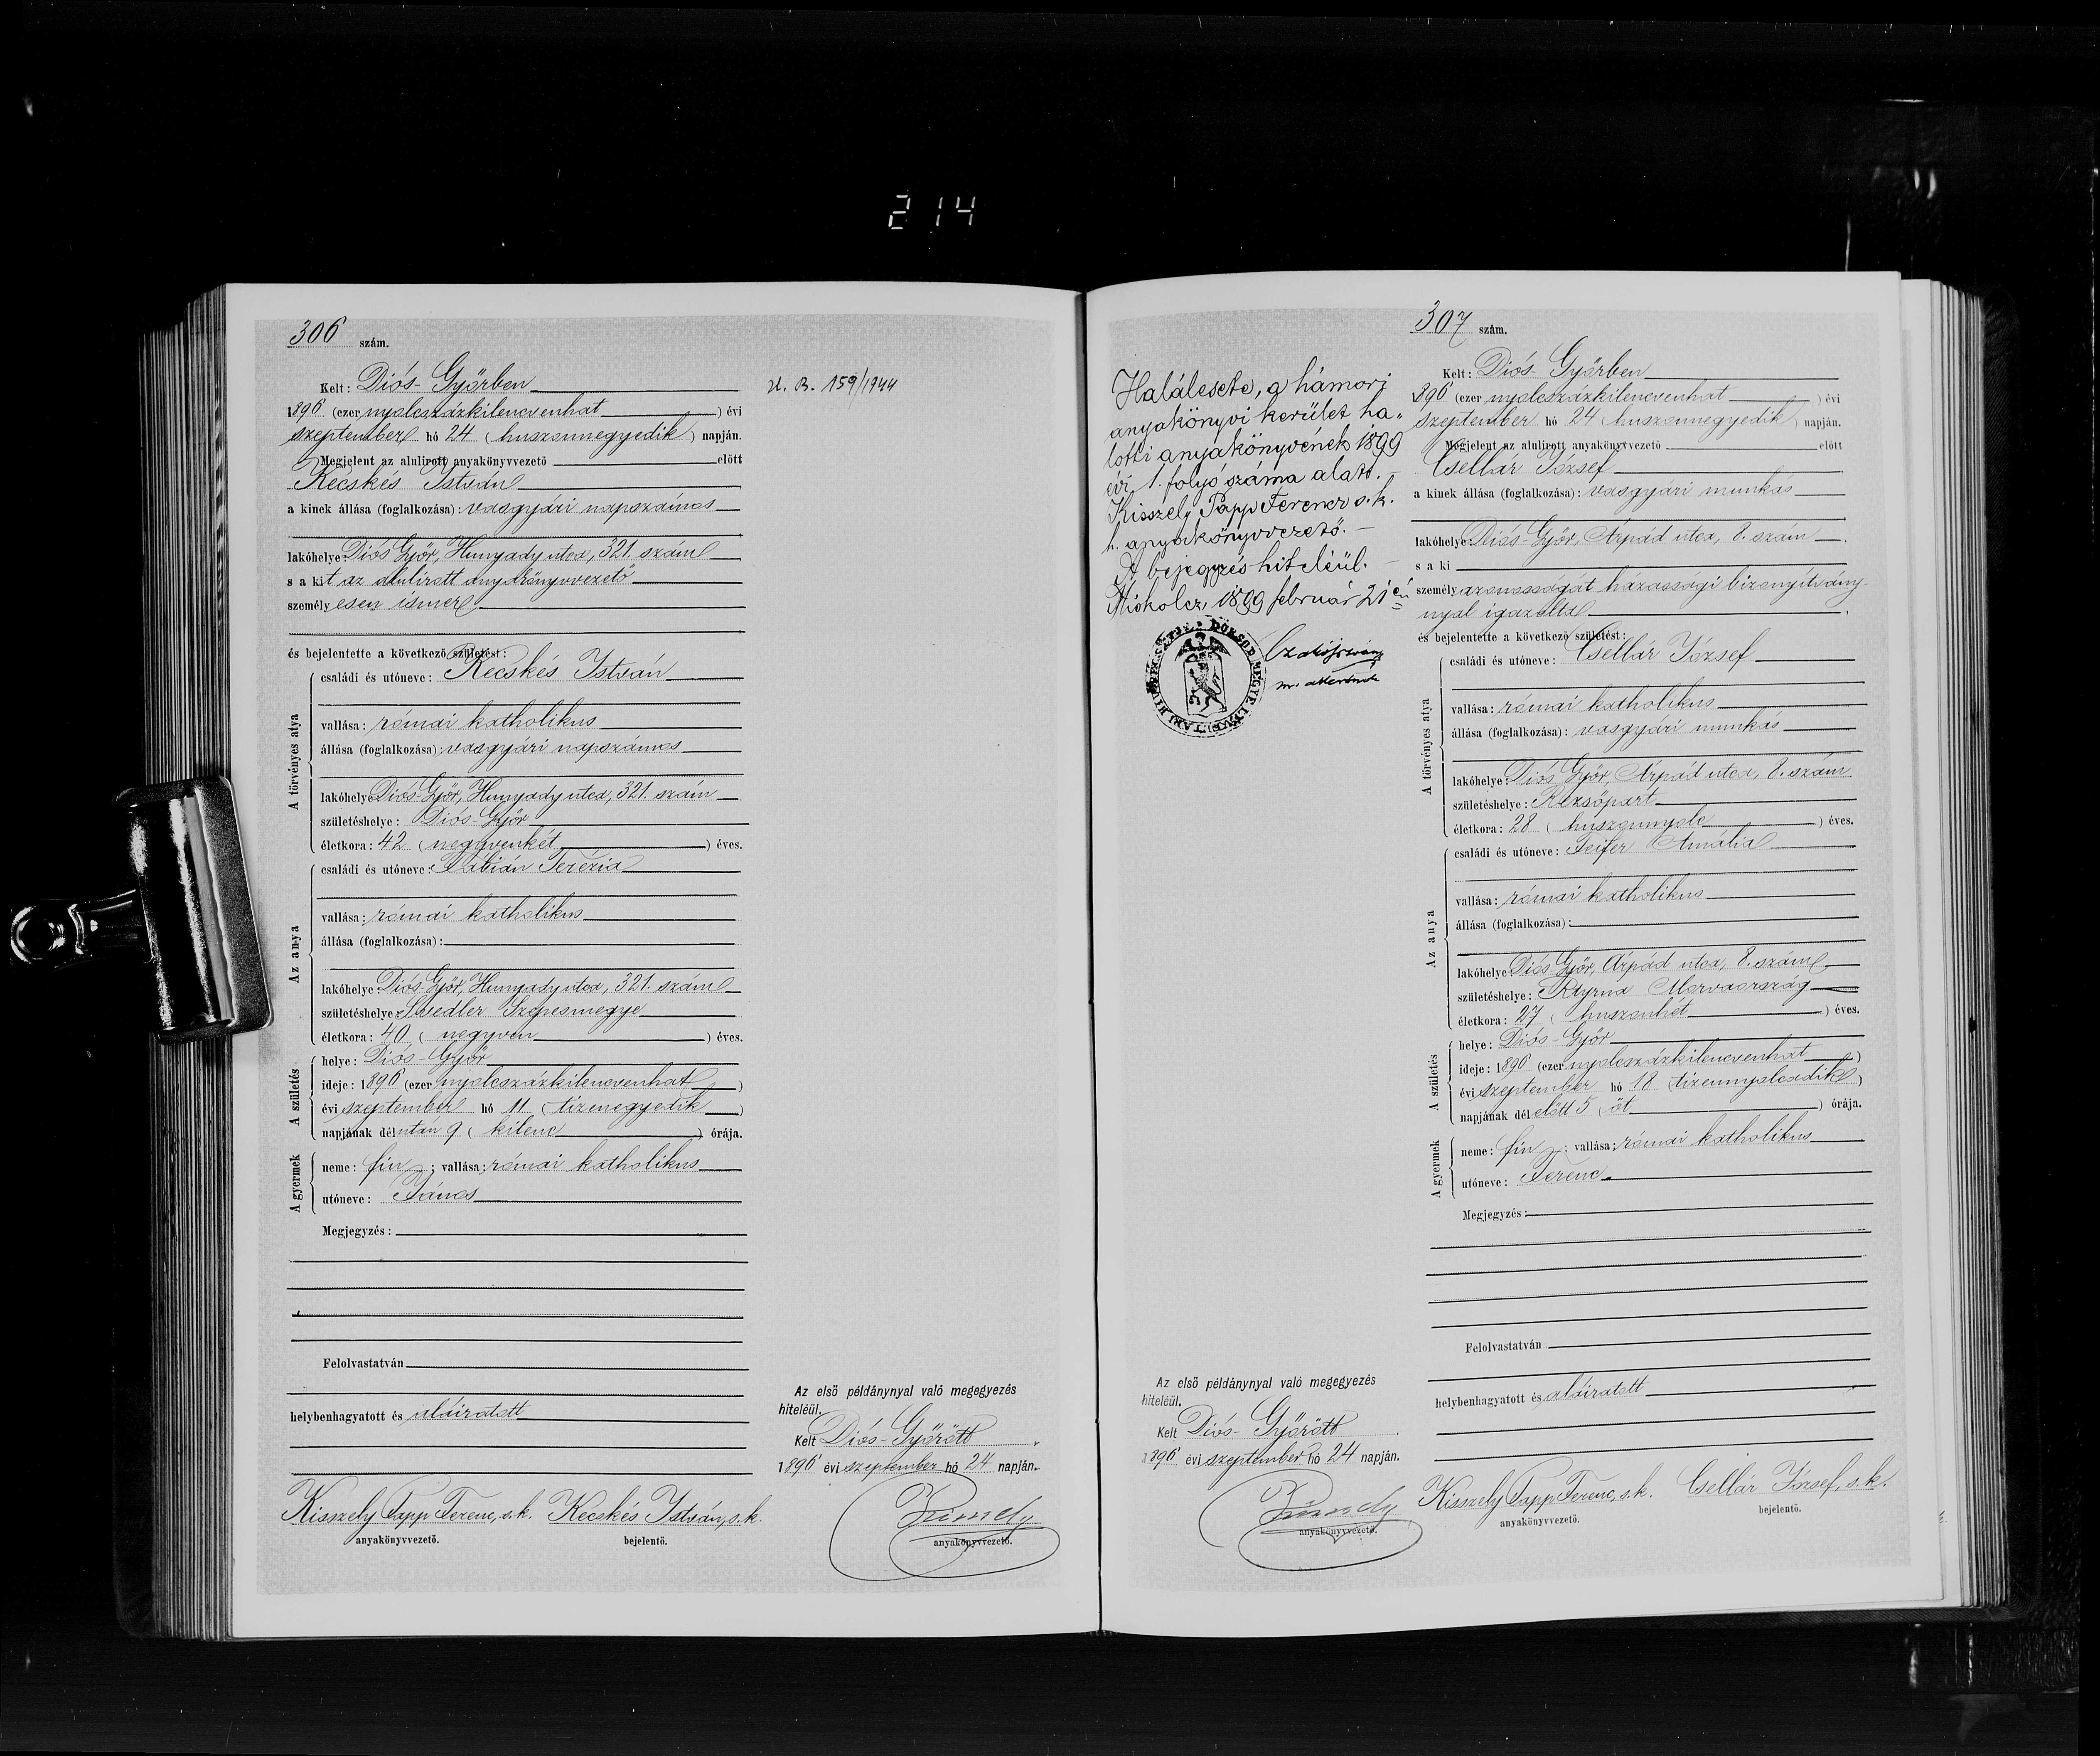 214
306 szám.
Kelt: Diós-Győrben
1896 (ezer nyolczázkilencvenhat) évi
szeptember hó 24 (huszonnegyedik) napján.
Megjelent az alulirott anyakönyvvezető előtt
Kecskés István
a kinek állása (foglalkozása): vasgyári napszámos
lakóhelye: Diós-Győr, Hunyady utca, 321. szám
s a kit az alulirott anyakönyvvezető
személyesen ismer
és bejelentette a következő születést:
A törvényes atya
családi és utóneve: Kecskés István
vallása: római katholikus
állása (foglalkozása): vasgyári napszámos
lakóhelye: Diós-Győr, Hunyady utca, 321. szám
születéshelye: Diós-Győr
életkora: 42 (negyvenkét) éves.
Az anya
családi és utóneve: Fábián Terézia
vallása: római katholikus
állása (foglalkozása):
lakóhelye: Diós-Győr, Hunyady utca, 321. szám
születéshelye: Svedler Szepesmegye
életkora: 40 (negyven) éves.
A születés
helye: Diós-Győr
ideje: 1896 (ezer nyolczázkilencvenhat)
évi szeptember hó 11 (tizenegyedik)
napjának délután 9 (kilenc) órája.
A gyermek
neme: fiu; vallása: római katholikus
utóneve: János
Megjegyzés:
Felolvastatván
helybenhagyatott és aláiratott
Kisszely Papp Ferenc, s.k. Kecskés István, s.k.
anyakönyvvezető. bejelentő.
U. B. 159/1944
Az első példánynyal való megegyezés
hiteléül.
Kelt Diós-Győrött
1896 évi szeptember hó 24 napján.
anyakönyvvezető.
Halálesete, a hámori
anyakönyvi kerület ha„
lotti anyakönyvének 1899
évi 1. folyó száma alatt. –
Kisszely Papp Ferencz s. k.
h. anyakönyvvezető. –
A bejegyzés hiteléül. –
Miskolcz, 1899 február 21 én
Az első példánynyal való megegyezés
hiteléül.
Kelt Diós-Győrött
1896 évi szeptember hó 24 napján.
anyakönyvvezető.
307 szám.
Kelt: Diós-Győrben
1896 (ezer nyolczázkilencvenhat) évi
szeptember hó 24 (huszonnegyedik) napján.
Megjelent az alulirott anyakönyvvezető előtt
Csellár József
a kinek állása (foglalkozása): vasgyári munkás
lakóhelye: Diós-Győr, Árpád utca, 8. szám
s a ki
személyazonosságát házassági bizonyitvány-
nyal igazolta
és bejelentette a következő születést:
A törvényes atya
családi és utóneve: Csellár József
vallása: római katholikus
állása (foglalkozása): vasgyári munkás
lakóhelye: Diós-Győr, Árpád utca, 8. szám
születéshelye: Rezsőpart
életkora: 28 (huszonnyolc) éves.
Az anya
családi és utóneve: Feifer Amália
vallása: római katholikus
állása (foglalkozása):
lakóhelye: Diós-Győr, Árpád utca, 8. szám
születéshelye: Morvaország
életkora: 27 (huszonhét) éves.
A születés
helye: Diós-Győr
ideje: 1896 (ezer nyolczázkilencvenhat)
évi szeptember hó 18 (tizennyolcadik)
napjának délelőtt 5 (öt) órája.
A gyermek
neme: fiu; vallása: római katholikus
utóneve: Ferenc
Megjegyzés:
Felolvastatván
helybenhagyatott és aláiratott
Kisszely Papp Ferenc, s.k. Csellár József, s.k.
anyakönyvvezető. bejelentő.